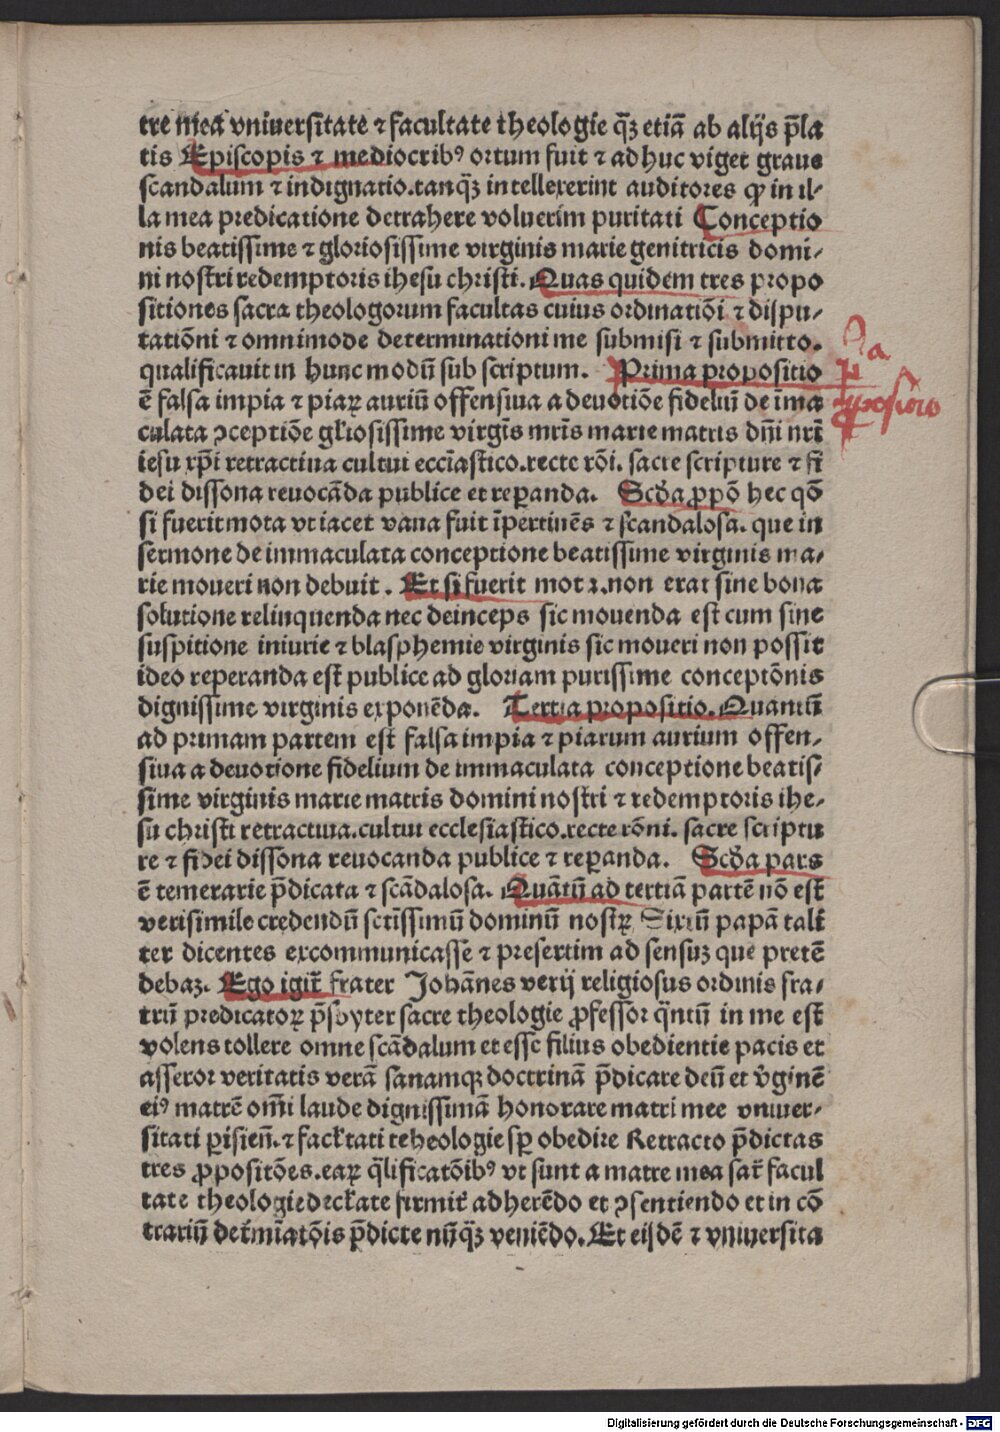 tre mea vniuersitate ⁊ facultate theologie qȝ etiā ab alijs p̄la
tis Episcopis ⁊ mediocribꝰ ortum fuit ⁊ adhuc viget graue
scandalum ⁊ indignatio.tanqȝ intellexerint auditores ꝙ in il⸗
la mea predicatione detrahere voluerim puritati Conceptio
nis beatissime ⁊ gloriosissime virginis marie genitricis domi⸗
ni nostri redemptoris ihesu christi. Quas quidem tres propo
sitiones sacra theologorum facultas cuius ordinatiōi ⁊ dispu⸗
tatiōni ⁊ omnimode determinationi me submisi ⁊ submitto.
qualificauit in hunc modū sub scriptum. Prima propositio
ē falsa impia ⁊ piaꝝ auriū offensiua a deuotiōe fideliū de īma
culata ꝯceptiōe gl'iosissime virgīs mr̄is marie matris dn̄i nr̄i
iesu xp̄i retractiua cultui ecciāstico.recte rōi. sacre scripture ⁊ fi
dei dissona reuocāda publice et reꝑanda. Scd'a ꝓpō hec qō
si fuerit mota vt iacet vana fuit īpertinēs ⁊ scandalosa. que in
sermone de immaculata conceptione beatissime virginis ma⸗
rie moueri non debuit. Et si fuerit mota.non erat sine bona
solutione relinquenda nec deinceps sic mouenda est cum sine
suspitione iniurie ⁊ blasphemie virginis sic moueri non possit
ideo reꝑanda est publice ad gloriam purissime conceptōnis
dignissime virginis exponēda. Tertia propositio. Quantū
ad primam partem est falsa impia ⁊ piarum aurium offen⸗
siua a deuotione fidelium de immaculata conceptione beatis⸗
sime virginis marie matris domini nostri ⁊ redemptoris ihe⸗
su christi retractiua.cultui ecclesiastico.recte rōni. sacre scriptu
re ⁊ fidei dissona reuocanda publice ⁊ reꝑanda. Scd'a pars
ē temerarie p̄dicata ⁊ scādalosa. Quātū ad tertiā partē nō est
verisimile credendū sctīssimū dominū nostꝝ Sixtū papā tali
ter dicentes excommunicasse ⁊ presertim ad sensuȝ que pretē
debaȝ. Ego igit̄ frater Johānes verij religiosus ordinis fra⸗
trū predicatoꝝ p̄sbyter sacre theologie ꝓfessor q̄ntū in me est
volens tollere omne scādalum et esse filius obedientie pacis et
asseror veritatis verā sanamqȝ doctrinā p̄dicare deū et v'ginē
eiꝰ matrē om̄i laude dignissimā honorare matri mee vniuer⸗
sitati ꝑisieñ. ⁊ fack'tati teheologie sꝑ obedire Retracto p̄dictas
tres ꝓpositōes.eaꝝ q̄lificatōibꝰ vt sunt a matre mea sar̄ facul
tate theologie deck'ate firmit' adherēdo et ꝯsentiendo et in cō
trariū det'mīatōis p̄dicte nūqȝ veniēdo. Et eisdē ⁊ vniuersita
Digitalisierung gefördert durch die Deutsche Forschungsgemeinschaft - DFG